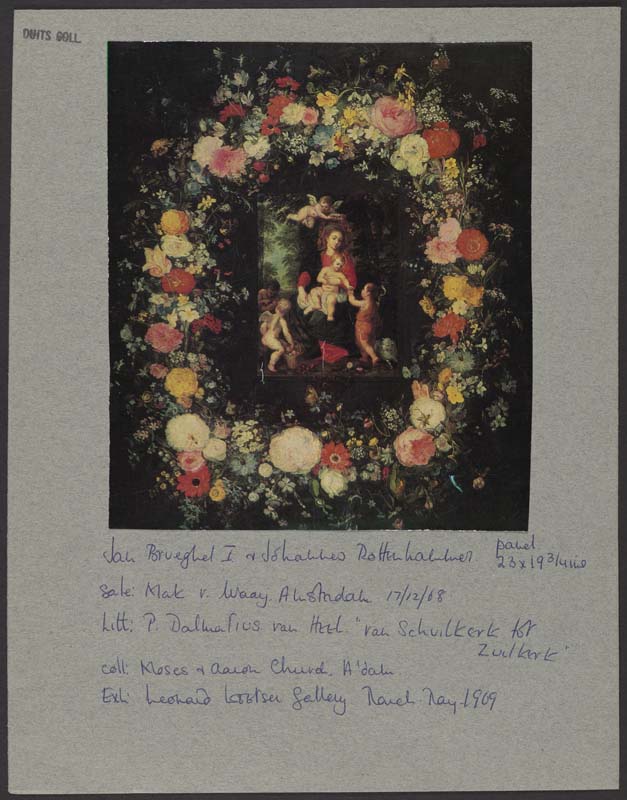 DUITS COLL.
Jan Brueghel I & Johannes Rottenhammer panel.
23 x 19 3/4 ins
Sale: Mak v. Waay Amsterdam 17/12/68
Litt: P. Dalmatius van Heel "van Schuilkerk tot
Zuilkerk"
coll: Moses & Aaron Church, A'dam
Exh: Leonard Koetser Gallery March May 1969